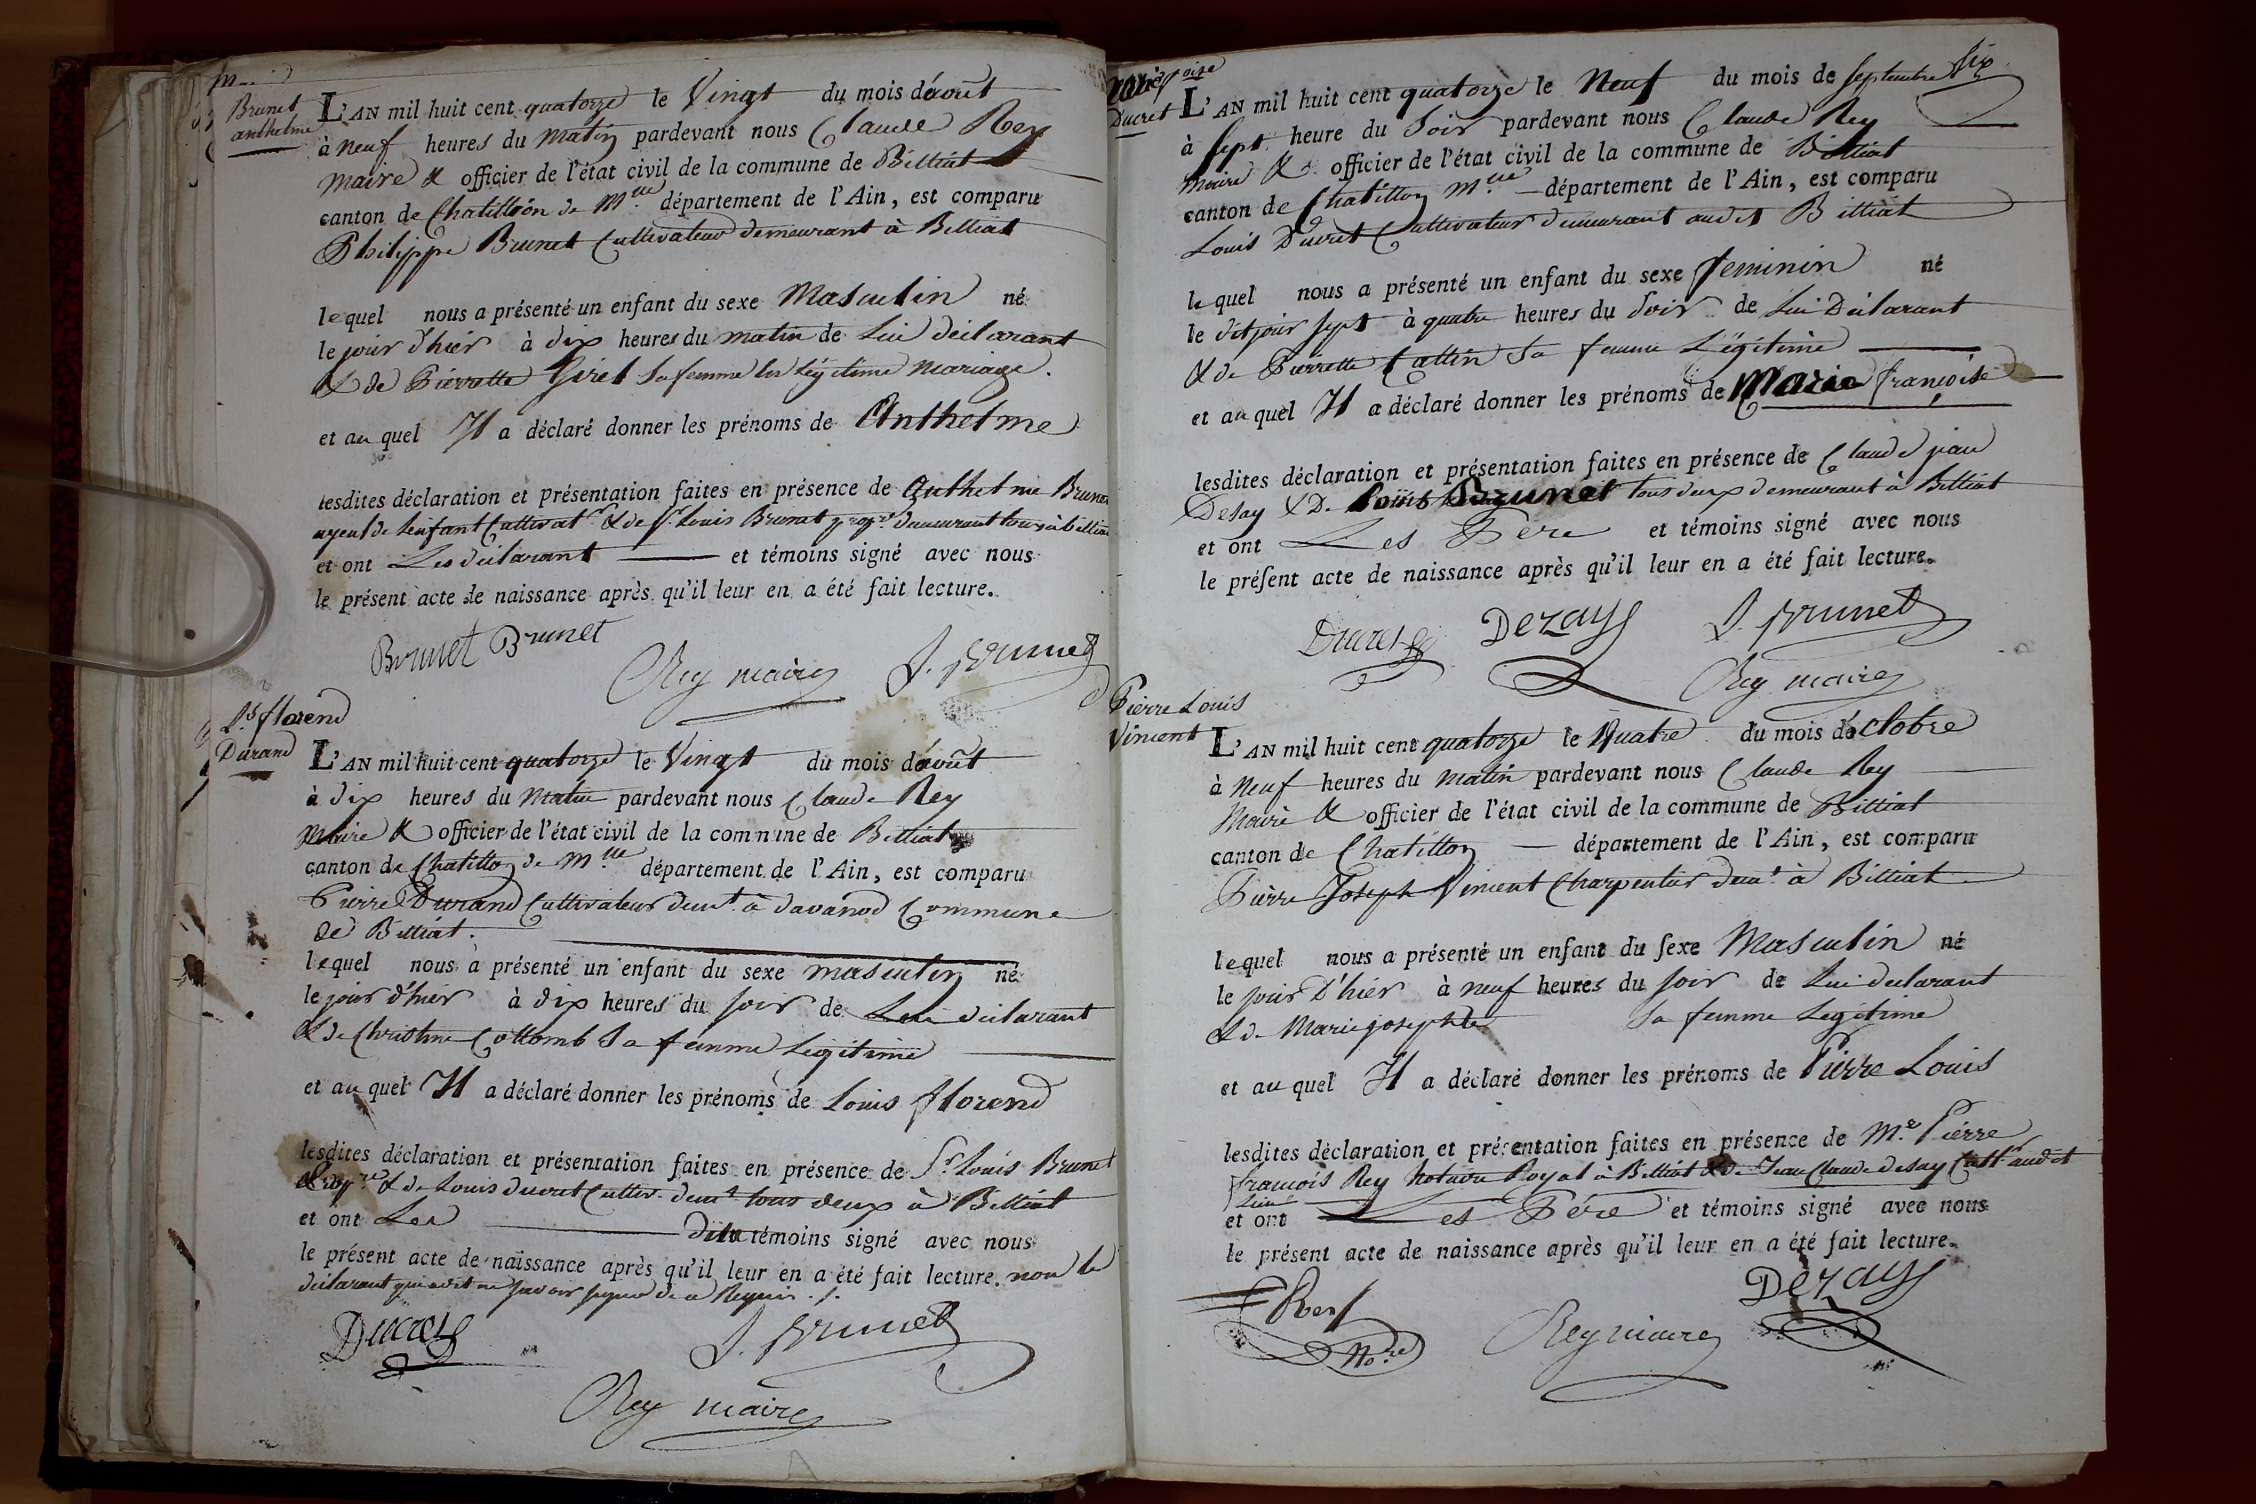 Brunet
anthelme
L'AN mil huit cent quatorze le Vingt du mois d'août
à neuf heures du Matin pardevant nous Claude Rey
Maire & officier de l'état civil de la commune de Billiat
canton de Chatillon de M.lle département de l'Ain, est comparu
Philippe Brunet Cultivateur demeurant à Billiat
lequel nous a présenté un enfant du sexe Masculin né
le jour d'hier à dix heures du matin de Lui déclarant
& de Pierrette Giret sa femme en Légitime Mariage.
et au quel Il a déclaré donner les prénoms de Anthelme
lesdites déclaration et présentation faites en présence de Anthelme Brunet
ayeul de l'enfant Cultivat.r & de S.r Louis Brunet prop.re demeurant tous à billiat
et ont Les déclarant et témoins signé avec nous
le présent acte de naissance après qu'il leur en a été fait lecture.
Brunet Brunet
Rey maire L. Brunet
L.s florend
Durand
L'AN mil huit cent quatorze le Vingt du mois d'août
à dix heures du Matin pardevant nous Claude Rey
Maire & officier de l'état civil de la commune de Billiat
canton de Chatillon de M.lle département de l'Ain, est comparu
Pierre Durand Cultivateur dem.t à davanod Commune
de Billiat.
lequel nous a présenté un enfant du sexe masculin né
le jour d'hier à dix heures du soir de Lui déclarant
& de Christine Collomb Sa femme Légitime
et au quel Il a déclaré donner les prénoms de Louis florend
lesdites déclaration et présentation faites en présence de S.r Louis Brunet
prop.re & de Louis ducret Cultiv. dem.t tous deux à Billiat
et ont Les dits témoins signé avec nous
le présent acte de naissance après qu'il leur en a été fait lecture. non le
déclarant qui a dit ne savoir signer de ce Requis ./.
Ducret L. Brunet
Rey maire
Six
Marie françoise
Ducret
L'AN mil huit cent quatorze le Neuf du mois de septembre
à sept heure du Soir pardevant nous Claude Rey
Maire & officier de l'état civil de la commune de Billiat
canton de Chatillon M.lle département de l'Ain, est comparu
Louis Ducret Cultivateur demeurant audit Billiat
lequel nous a présenté un enfant du sexe feminin né
le dit jour sept à quatre heures du Soir de Lui Déclarant
& de Pierrette Cattin Sa femme Légitime
et au quel Il a déclaré donner les prénoms de Marie françoise
lesdites déclaration et présentation faites en présence de Claude jean
Desay & De Louis Brunet tous deux demeurant à Billiat
et ont Les Pere et témoins signé avec nous
le présent acte de naissance après qu'il leur en a été fait lecture.
Ducret Dezays L. Brunet
Rey maire
Pierre Louis
Vincent
L'AN mil huit cent quatorze le Quatre du mois d'octobre
à Neuf heures du matin pardevant nous Claude Rey
Maire & officier de l'état civil de la commune de Billiat
canton de Chatillon département de l'Ain, est comparu
Pierre Joseph Vincent Charpentier dem.t à Billiat
lequel nous a présenté un enfant du sexe Masculin né
le jour D'hier à neuf heures du soir de Lui déclarant
& de Marie josephte Sa femme Légitime
et au quel Il a déclaré donner les prénoms de Pierre Louis
lesdites déclaration et présentation faites en présence de M.e Pierre
françois Rey Notaire Royal à Billiat & de Jean Claude desay Cult.r audit
Lieu
et ont Les Pére et témoins signé avec nous
le présent acte de naissance après qu'il leur en a été fait lecture.
Rey Dezays
No.re Rey maire